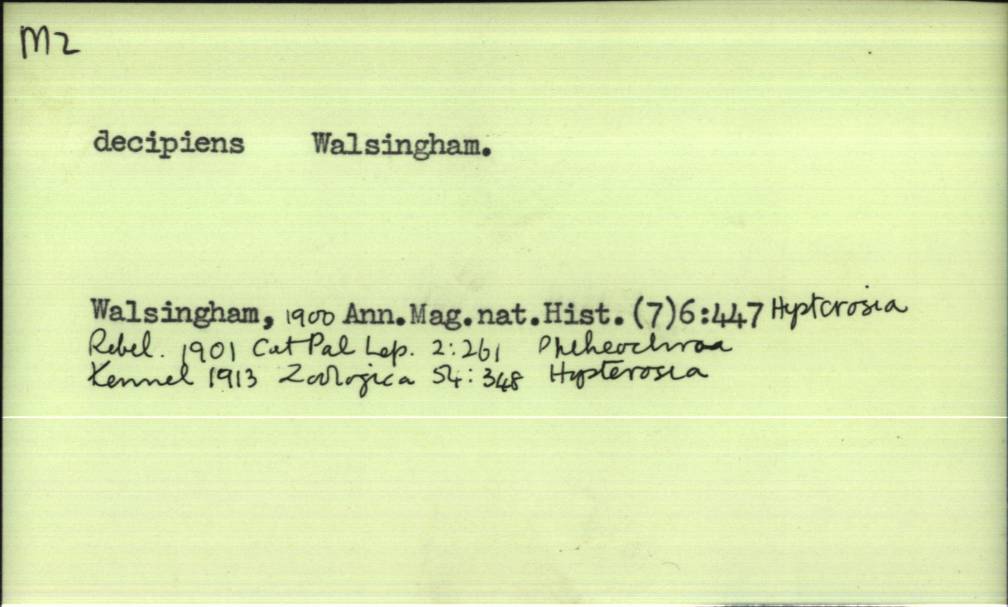 M2
decipiens Walsingham.
Walsingham, 1900 Ann.Mag.nat.Hist.(7)6:447 Hypterosia
Rebel. 1901 Cat Pal Lep. 2:261 Phtheochroa
Kennel 1913 Zoologica 54:348 Hypterosia